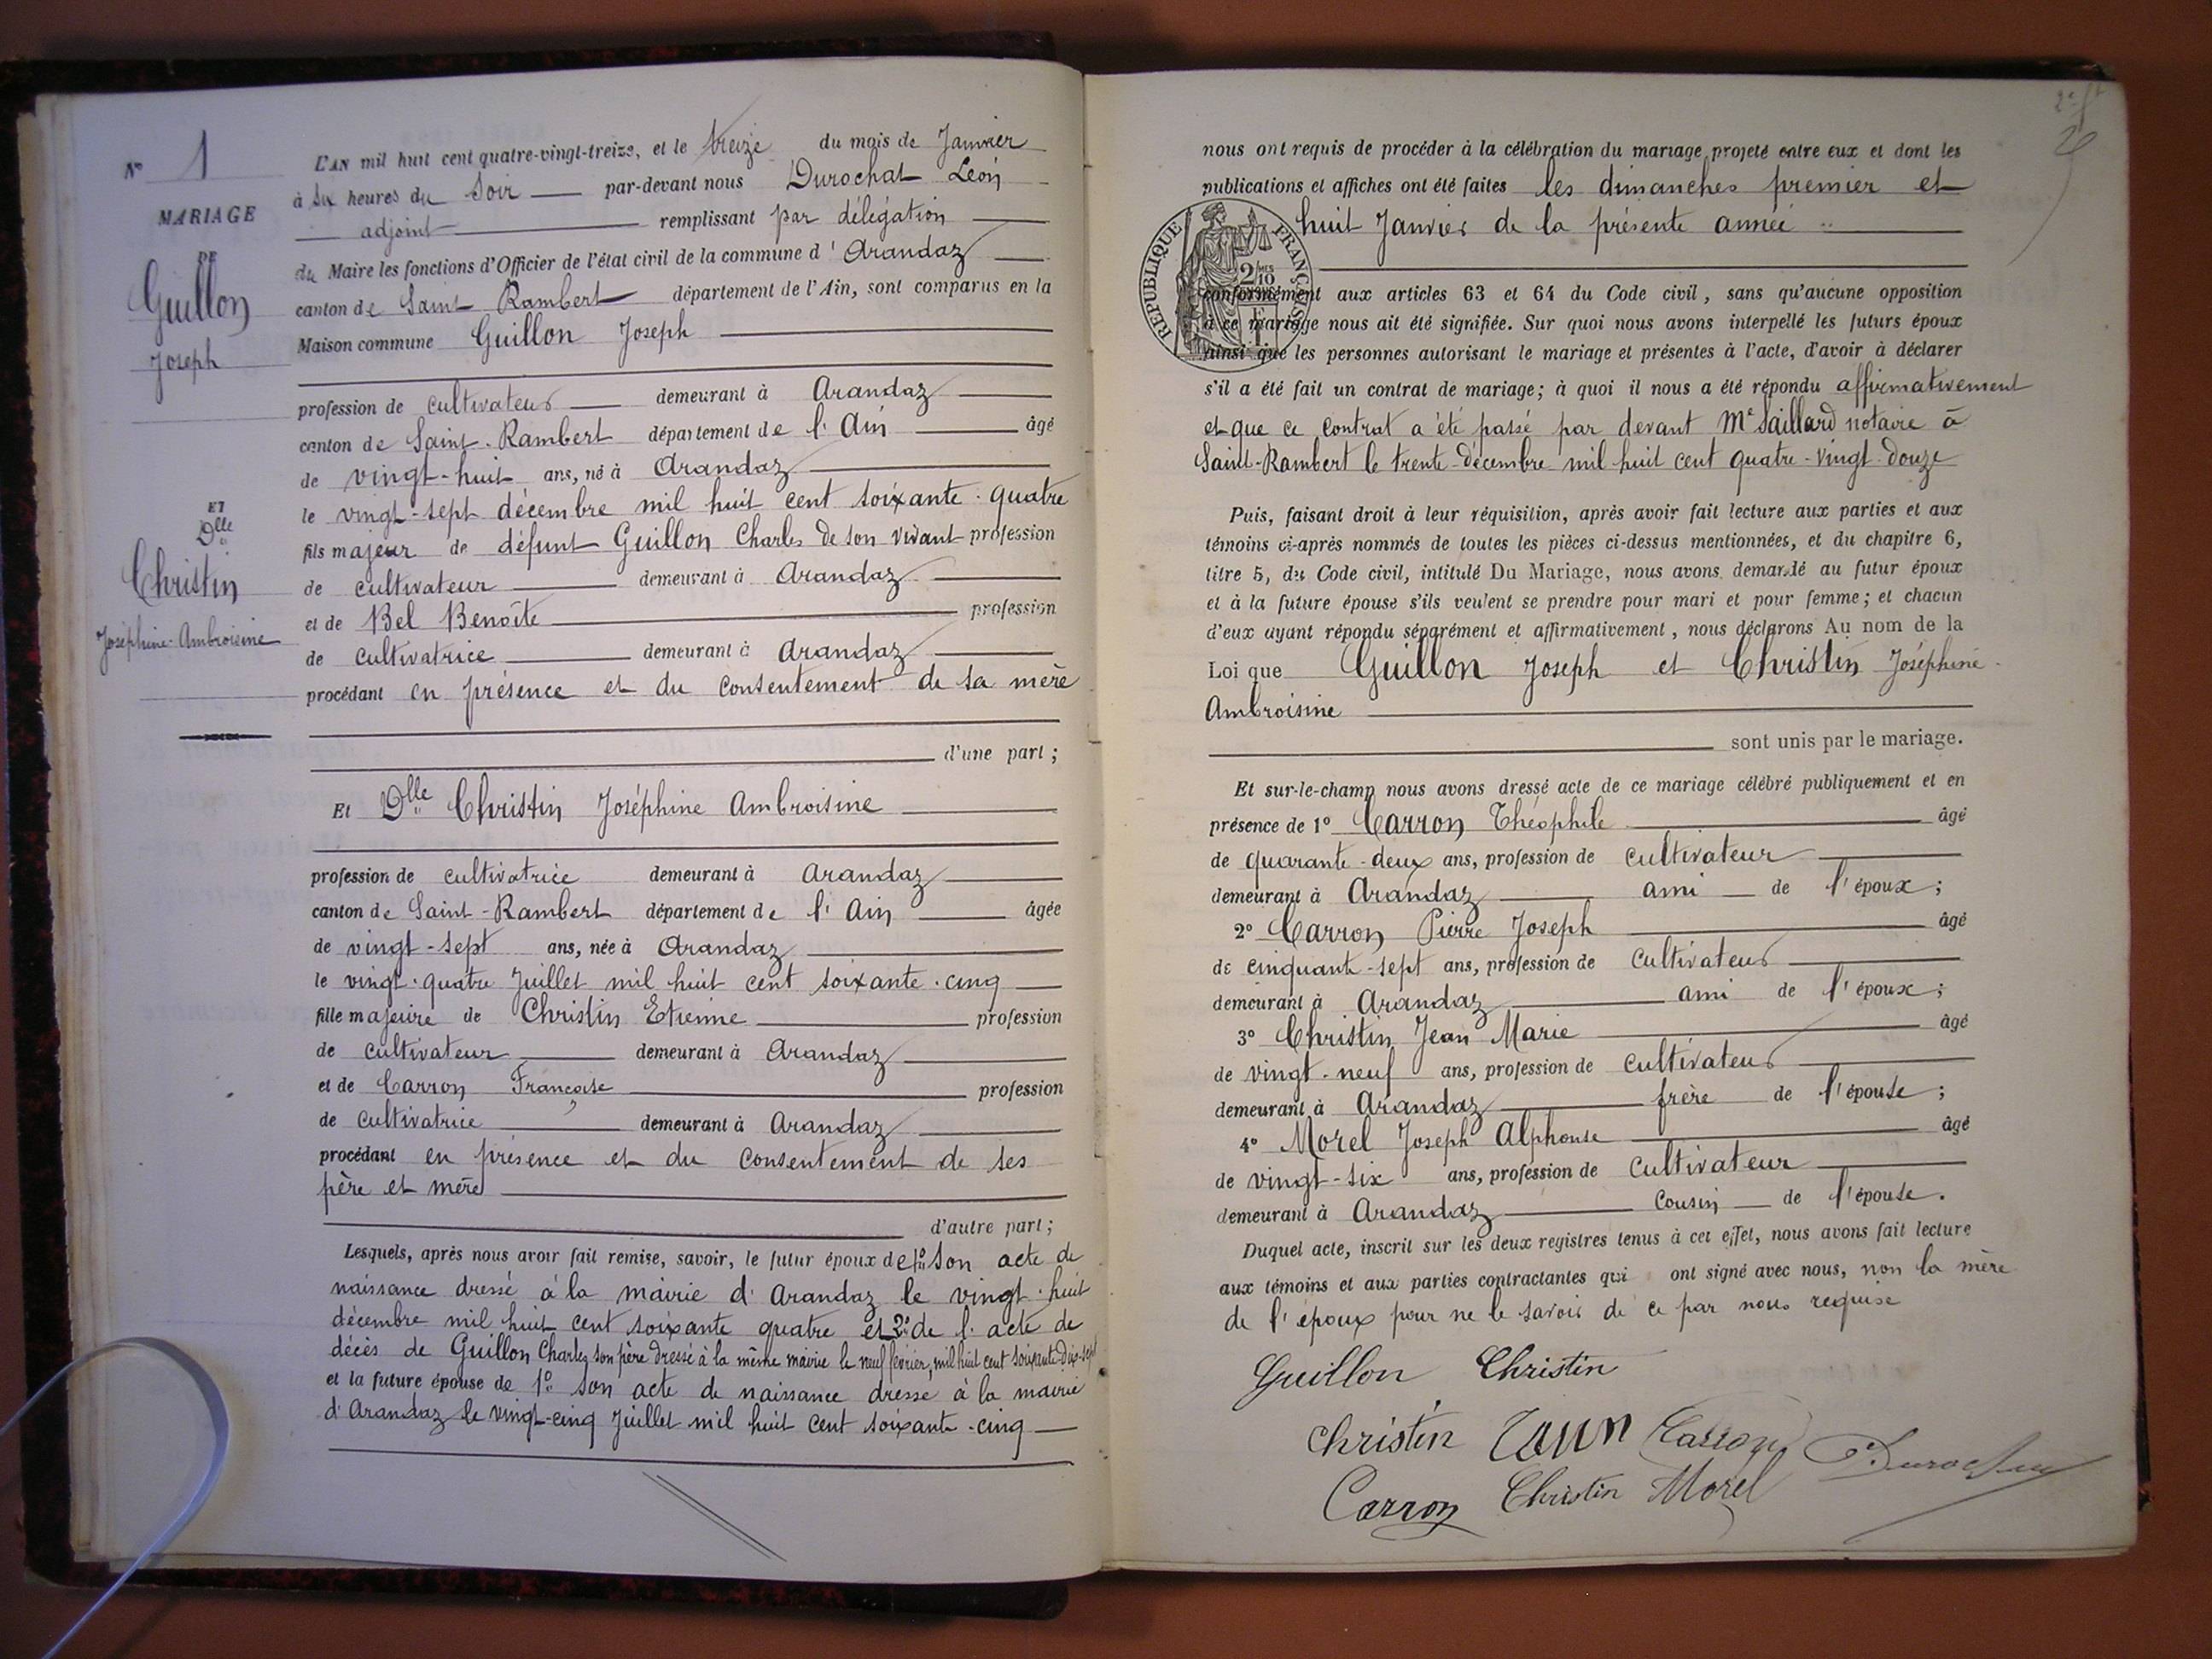 N° 1
MARIAGE
DE
Guillon
Joseph
ET
Dlle
Christin
Joséphine-Ambroisine
L'AN mil huit cent quatre-vingt-treize, et le treize du mois de Janvier
à six heures du soir par-devant nous Durochat Léon
adjoint remplissant par délégation
du Maire les fonctions d'Officier de l'état civil de la commune d'Arandaz
canton de Saint Rambert département de l'Ain, sont comparus en la
Maison commune Guillon Joseph
profession de cultivateur demeurant à Arandaz
canton de Saint-Rambert département de l'Ain âgé
de vingt-huit ans, né à Arandaz
le vingt-sept décembre mil huit cent soixante-quatre
fils majeur de défunt Guillon Charles de son vivant profession
de cultivateur demeurant à Arandaz
et de Bel Benoîte profession
de cultivatrice demeurant à Arandaz
procédant en présence et du consentement de sa mère
d'une part;
Et Dlle Christin Joséphine Ambroisine
profession de cultivatrice demeurant à Arandaz
canton de Saint-Rambert département de l'Ain âgée
de vingt-sept ans, née à Arandaz
le vingt-quatre Juillet mil huit cent soixante-cinq
fille majeure de Christin Etienne profession
de cultivateur demeurant à Arandaz
et de Carron Françoise profession
de cultivatrice demeurant à Arandaz
procédant en présence et du consentement de ses
père et mère
d'autre part;
Lesquels, après nous avoir fait remise, savoir, le futur époux de 1° Son acte de
naissance dressé à la mairie d'Arandaz le vingt-huit
décembre mil huit cent soixante quatre et 2° de l'acte de
décès de Guillon Charles son père dressé à la même mairie le neuf février, mil huit cent soixante-dix-sept
et la future épouse de 1° son acte de naissance dressé à la mairie
d'Arandaz le vingt-cinq Juillet mil huit cent soixante-cinq
26
nous ont requis de procéder à la célébration du mariage projeté entre eux et dont les
publications et affiches ont été faites les dimanches premier et
huit Janvier de la présente année
RÉPUBLIQUE FRANÇAISE
2/10
conformément aux articles 63 et 64 du Code civil, sans qu'aucune opposition
à ce mariage nous ait été signifiée. Sur quoi nous avons interpellé les futurs époux
ainsi que les personnes autorisant le mariage et présentes à l'acte, d'avoir à déclarer
s'il a été fait un contrat de mariage; à quoi il nous a été répondu affirmativement
et que ce contrat a été passé par devant Me Saillard notaire à
Saint-Rambert le trente-décembre mil huit cent quatre-vingt-douze
Puis, faisant droit à leur réquisition, après avoir fait lecture aux parties et aux
témoins ci-après nommés de toutes les pièces ci-dessus mentionnées, et du chapitre 6,
titre 5, du Code civil, intitulé Du Mariage, nous avons demandé au futur époux
et à la future épouse s'ils veulent se prendre pour mari et pour femme; et chacun
d'eux ayant répondu séparément et affirmativement, nous déclarons Au nom de la
Loi que Guillon Joseph et Christin Joséphine
Ambroisine
sont unis par le mariage.
Et sur-le-champ nous avons dressé acte de ce mariage célébré publiquement et en
présence de 1° Carron Théophile âgé
de quarante-deux ans, profession de cultivateur
demeurant à Arandaz ami de l'époux;
2° Carron Pierre Joseph âgé
de cinquante-sept ans, profession de cultivateur
demeurant à Arandaz ami de l'époux;
3° Christin Jean Marie âgé
de vingt-neuf ans, profession de cultivateur
demeurant à Arandaz frère de l'épouse;
4° Morel Joseph Alphonse âgé
de vingt-six ans, profession de cultivateur
demeurant à Arandaz cousin de l'épouse.
Duquel acte, inscrit sur les deux registres tenus à cet effet, nous avons fait lecture
aux témoins et aux parties contractantes qui ont signé avec nous, non la mère
de l'époux pour ne le savoir de ce par nous requise
Guillon Christin
Christin Carron
Carron Christin Morel